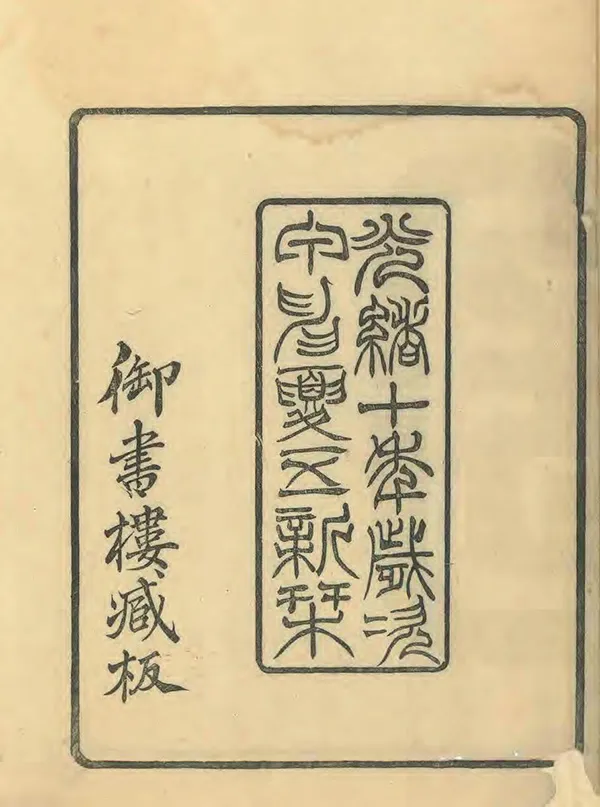 光緒十年歲次
甲申夏五新栞
御書樓臧板